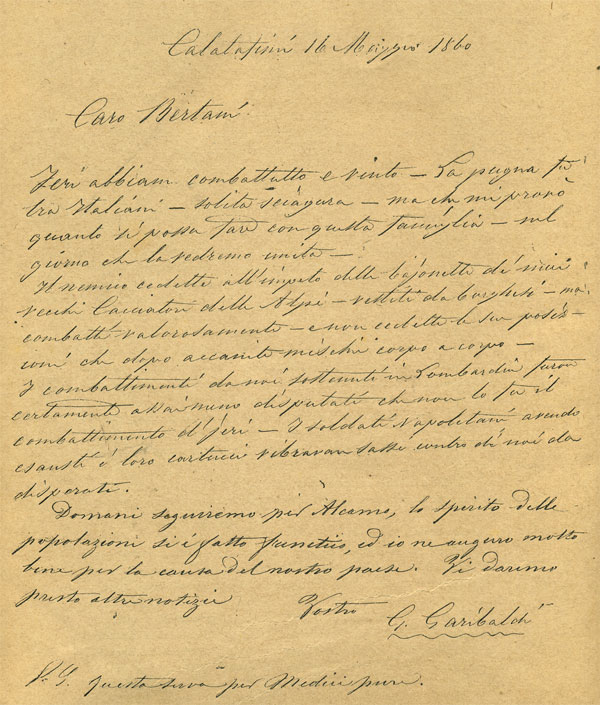 Calatafimi 16 Maggio 1860
Caro Bertani
Jeri abbiam combattuto e vinto – La pugna fu
tra Italiani – solita sciagura – ma che mi provò
quanto si possa fare con questa famiglia – nel
giorno che la vedremo unita –
Il nemico cedette all'impeto delle bajonette de' miei
vecchi Cacciatori delle Alpi – vestiti da borghesi – ma
combattè valorosamente – e non cedette le sue posiz-
ioni che dopo accanite mischie corpo a corpo –
I combattimenti da noi sostenuti in Lombardia furon
certamente assai meno disputati che non lo fu il
combattimento d'jeri – I soldati napoletani avendo
esausti i loro cartucci vibravan sassi contro di noi da
disperati.
Domani seguiremo per Alcamo, lo spirito delle
popolazioni si è fatto frenetico, ed io ne auguro molto
bene per la causa del nostro paese. Vi daremo
presto altre notizie Vostro
G. Garibaldi
Questa serva per Medici pure.